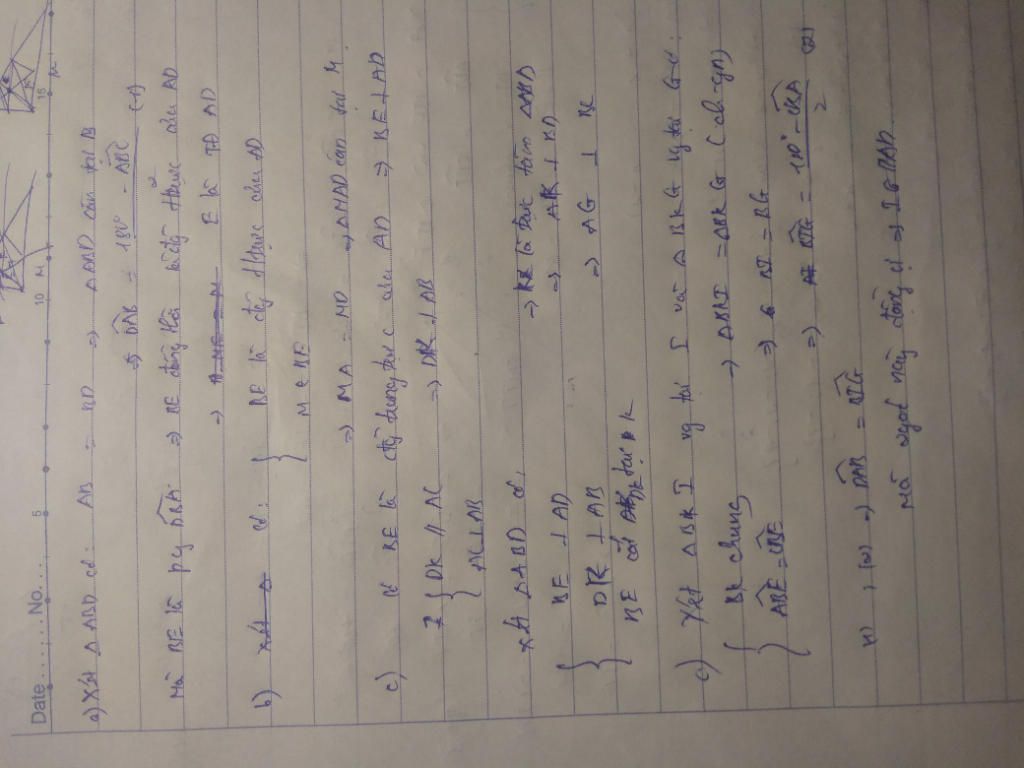 Date ........ No. ...
a) Xét △ ABD có: AB = BD ⇒ △ABD cân tại B
⇒ DAB = 180° - ABC (1)
Mà BE là pg DBA ⇒ BE đồng thời là đg trực của AD
⇒ E là TĐ AD
b) Xét △ có: BE là đg trực của AD
M ∈ BE
⇒ MA = MD ⇒ △MAD cân tại M
c) BE là đg trung trực của AD ⇒ BE ⊥ AD
DK // AC
AC ⊥ AB ⇒ DK ⊥ AB
Xét △ABD có:
BE ⊥ AD
DK ⊥ AB
BE cắt DK tại K
⇒ K là trực tâm △ABD
⇒ AK ⊥ BD
⇒ AG ⊥ BC
c) Xét △BKI vg tại I và △BKG vg tại G có:
BK chung
ABE = CBE
⇒ △BKI = △BKG (ch-gn)
⇒ BI = BG
⇒ BIG = 180° - CBA (2)
2
(1), (2) ⇒ DAB = BIG
Mà vị trí đồng vị ⇒ IG // AD
5
10
15
M